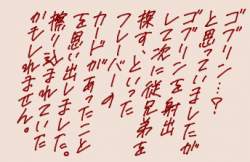 ゴブリン…?
と思っていましたが
ゴブリンを射出
して次に従兄弟を
探す、といった
フレーバーの
カードがあったこと
を思い出しました。
擦り込まれていた
かもしれません。